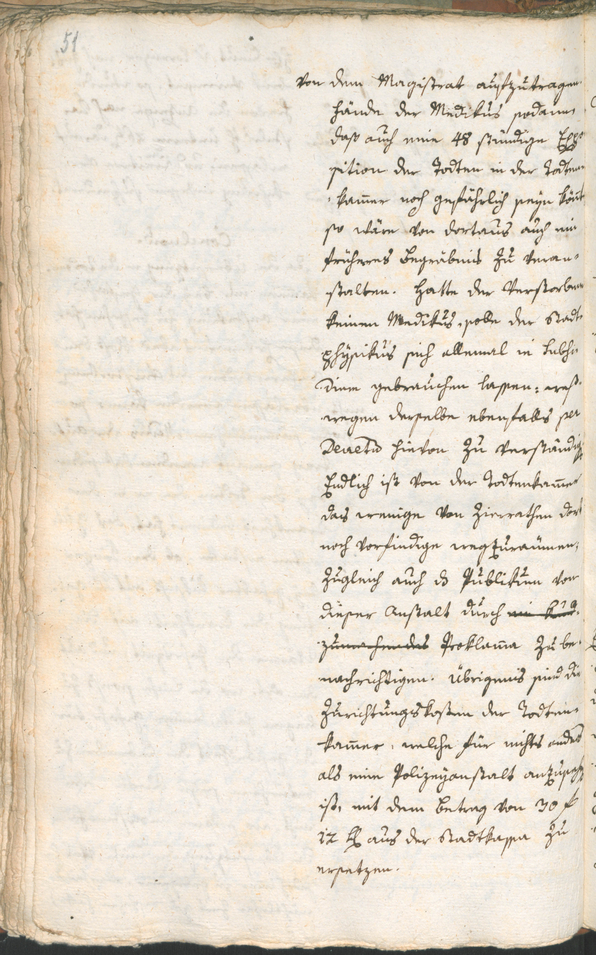 51
von dem Magistrat aufzutragen
fände der Medikus sodann
daß auch eine 48 stündige Expo
sition der Todten in der Todten
kammer noch gefährlich seyn könt
so wäre von dortaus auch ein
früheres Begräbnis zu veran-
stalten. Hatte der Verstorbene
keinen Medikus, solle der Stadt
physikus sich allemal in
gebrauchen lassen: wes-
wegen derselbe ebenfalls per
Decretu hievon zu verständig
Endlich ist von der Todtenkammer
das wenige von Zierrathen dort
noch vorfindige wegzuräumen,
zugleich auch ds Publikum von
dieser Anstalt durch ein
zumachendes Proklama zu be-
nachrichtigen. Übrigens sind die
Zurichtungskosten der Todten-
kammer, welche für nichts anders
als eine Polizeyanstalt anzusehe
ist, mit dem Betrag von 30 f
12 x aus der Stadtkassa zu
ersetzen.